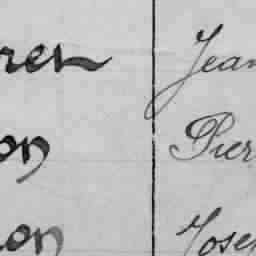 rer Jean
on Pier
on Josep